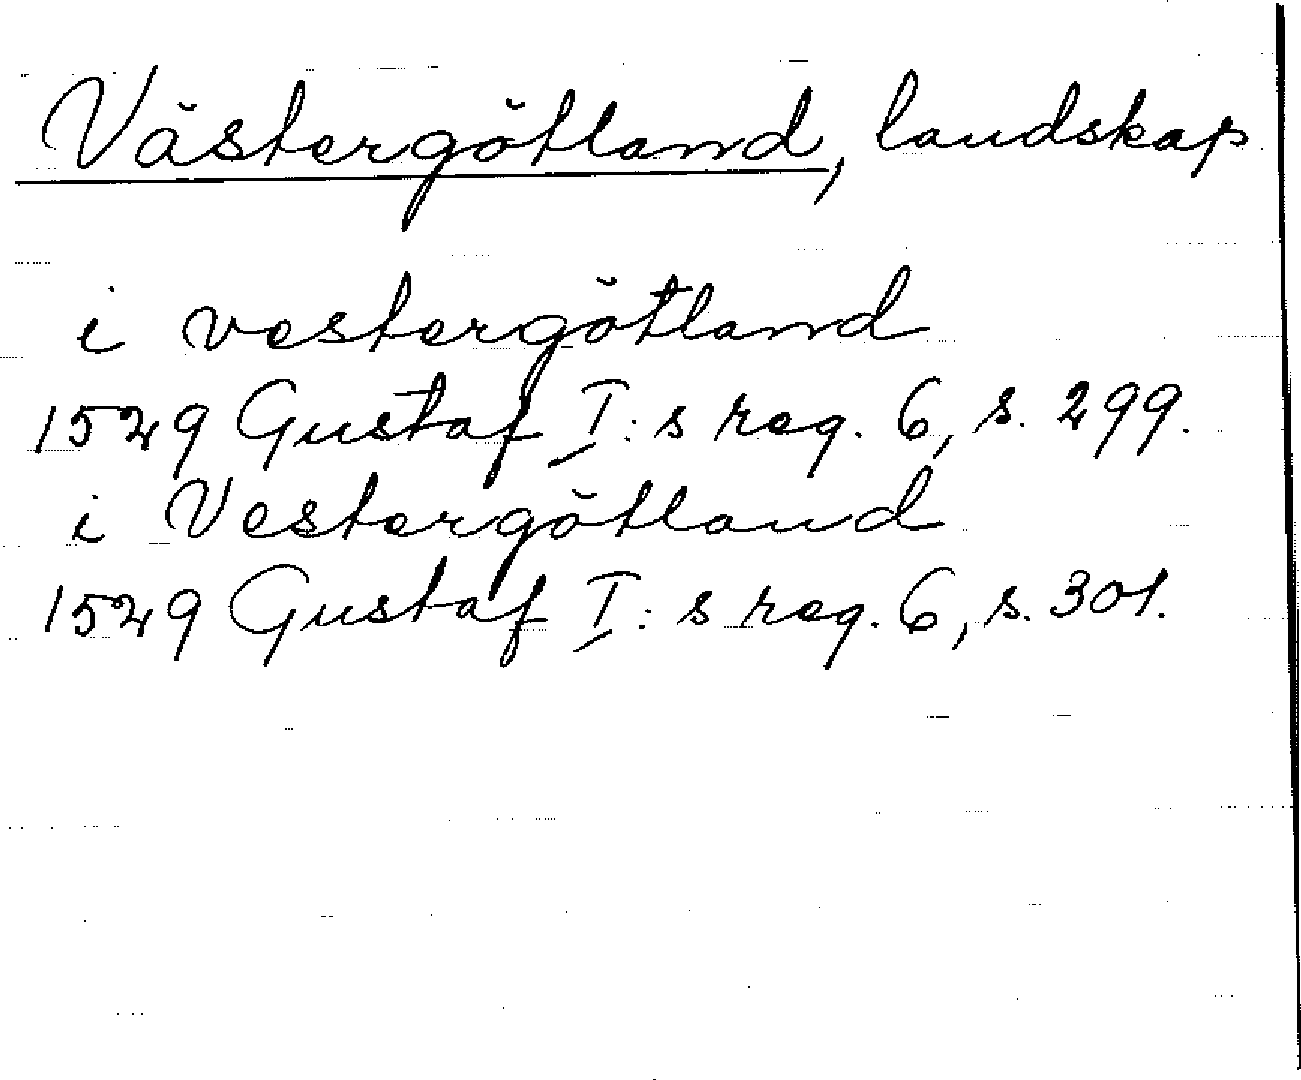 Västergötland, landskap
i vestergötland
1529 Gustaf I:s reg. 6, s. 299.
i Vestergötland
1529 Gustaf I:s reg. 6, s. 301.